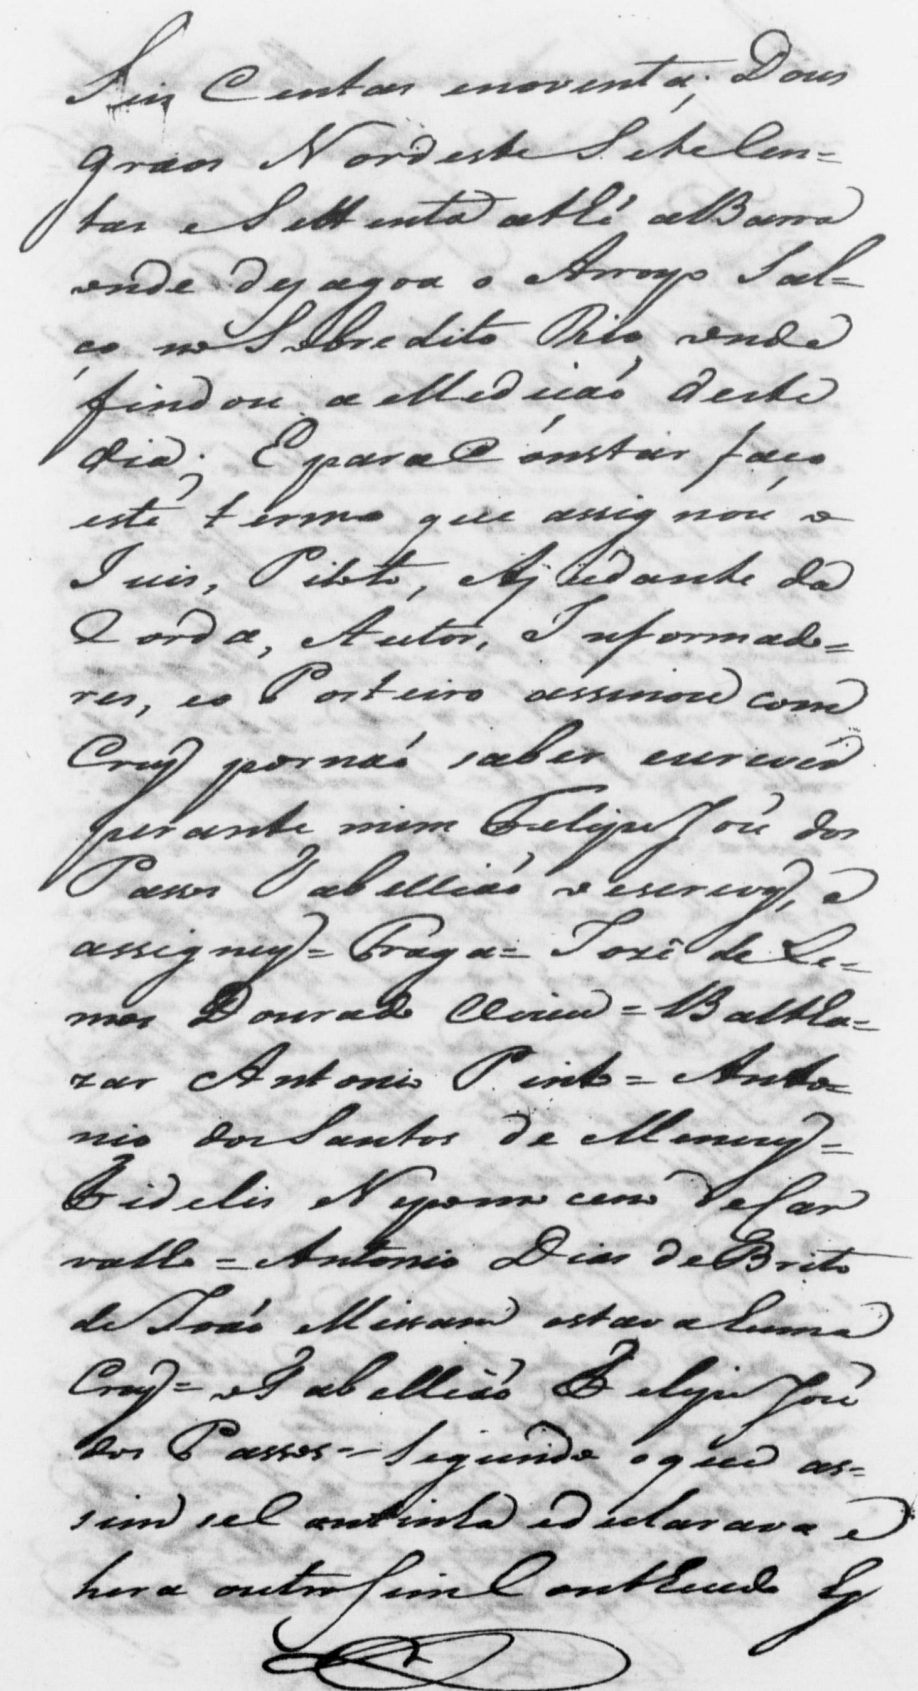 Seis Centas enoventa; Dous
graos Nordeste Sete Cen=
tas e Settenta athé a Barra
onde desagoa o Arroyo Sal=
ço no Sobredito Rio onde
findou a Medicaó deste
dia; E para Constar faço
este termo que assignou o
Juis, Piloto, Ajudante da
Corda, Autor, Informado=
res, eo Porteiro assinou com
Cruz por naó saber escrever
perante mim Felipe José dos
Passos Tabelliaó o escrevy, e
assigney = Braga = José de Le=
mos Dourado = Balttha=
zar Antonio Pinto = Anto=
nio dos Santos de Menezes =
Fidelis Nepomoceno de Car
valho = Antonio Dias de Brito
de Joaó Missam estava huma
Cruz = o Tabelliaó Felipe José
dos Passos = Segundo o que as=
sim se Continha e declarava e
hera outro sim Contheudo